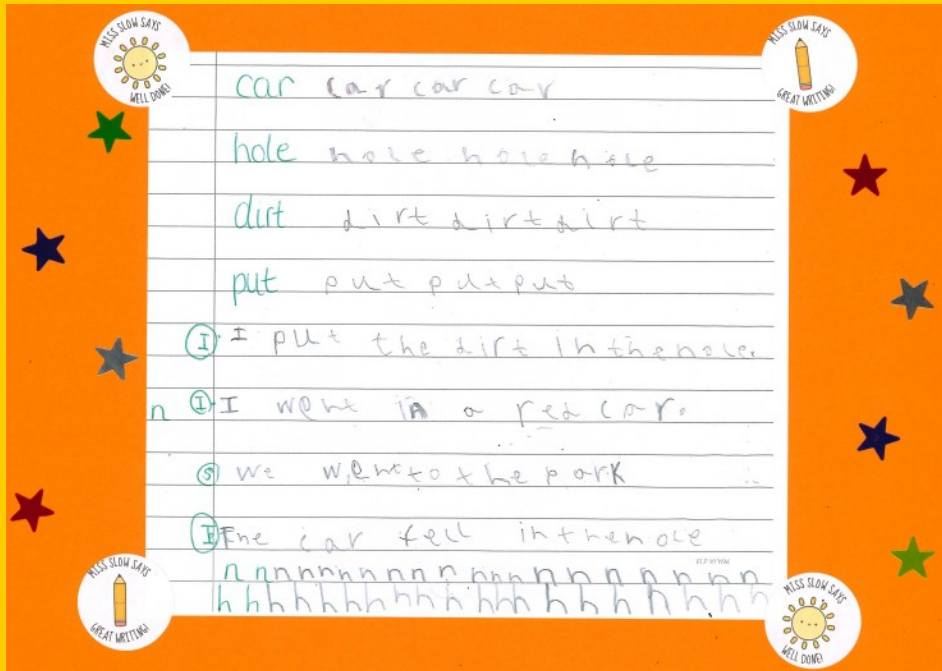 MISS SLOW SAYS
WELL DONE!
MISS SLOW SAYS
GREAT WRITING!
car car car car
hole hole hole hole
dirt dirt dirt dirt
put put put put
I I put the dirt in the hole.
n I I went in a red car.
S we went to the park
I The car fell in the hole
n n n n n n n n n n n n n n n n n n n n
h h h h h h h h h h h h h h h h h h h h
MISS SLOW SAYS
GREAT WRITING!
MISS SLOW SAYS
WELL DONE!